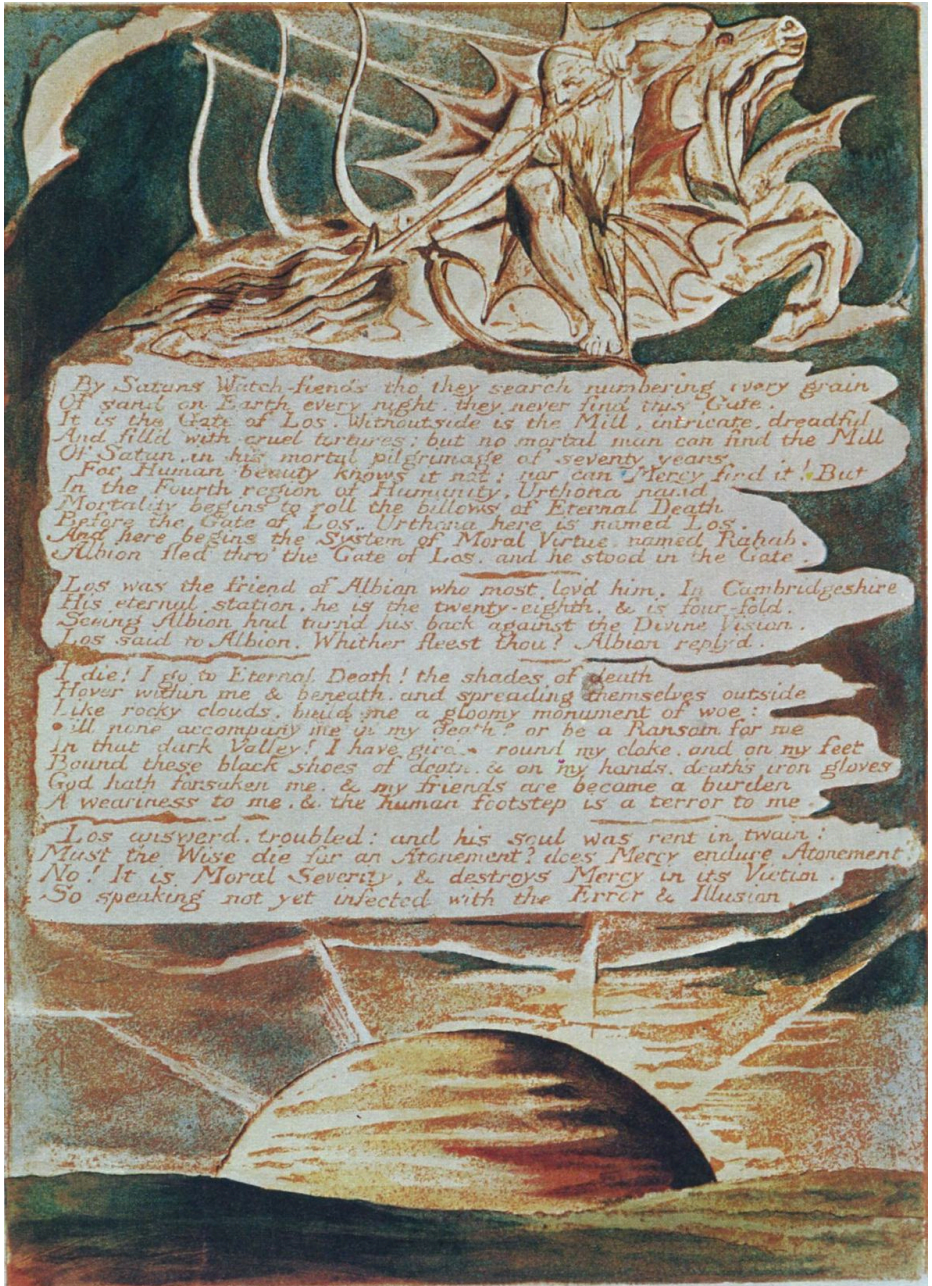 By Satans Watch-fiends tho' they search numbering every grain
Of sand on Earth every night, they never find this Gate.
It is the Gate of Los. Withoutside is the Mill, intricate, dreadful
And fill'd with cruel tortures; but no mortal man can find the Mill
Of Satan, in his mortal pilgrimage of seventy years
For Human beauty knows it not: nor can Mercy find it! But
In the Fourth region of Humanity, Urthona namd
Mortality begins to roll the billows of Eternal Death
Before the Gate of Los. Urthona here is named Los.
And here begins the System of Moral Virtue, named Rahab.
Albion fled thro' the Gate of Los, and he stood in the Gate.
Los was the friend of Albion who most lov'd him. In Cambridgeshire
His eternal station, he is the twenty-eighth, & is four-fold.
Seeing Albion had turn'd his back against the Divine Vision.
Los said to Albion. Whither fleest thou? Albion reply'd.
I die! I go to Eternal Death! the shades of death
Hover within me & beneath, and spreading themselves outside
Like rocky clouds, build me a gloomy monument of woe:
ill none accompany me in my death? or be a Ransom for me
In that dark Valley? I have gird round my cloke, and on my feet
Bound these black shoes of death, & on my hands, death's iron gloves
God hath forsaken me, & my friends are become a burden
A weariness to me, & the human footstep is a terror to me.
Los answerd, troubled: and his soul was rent in twain:
Must the Wise die for an Atonement? does Mercy endure Atonement?
No! It is Moral Severity, & destroys Mercy in its Victim.
So speaking, not yet infected with the Error & Illusion,